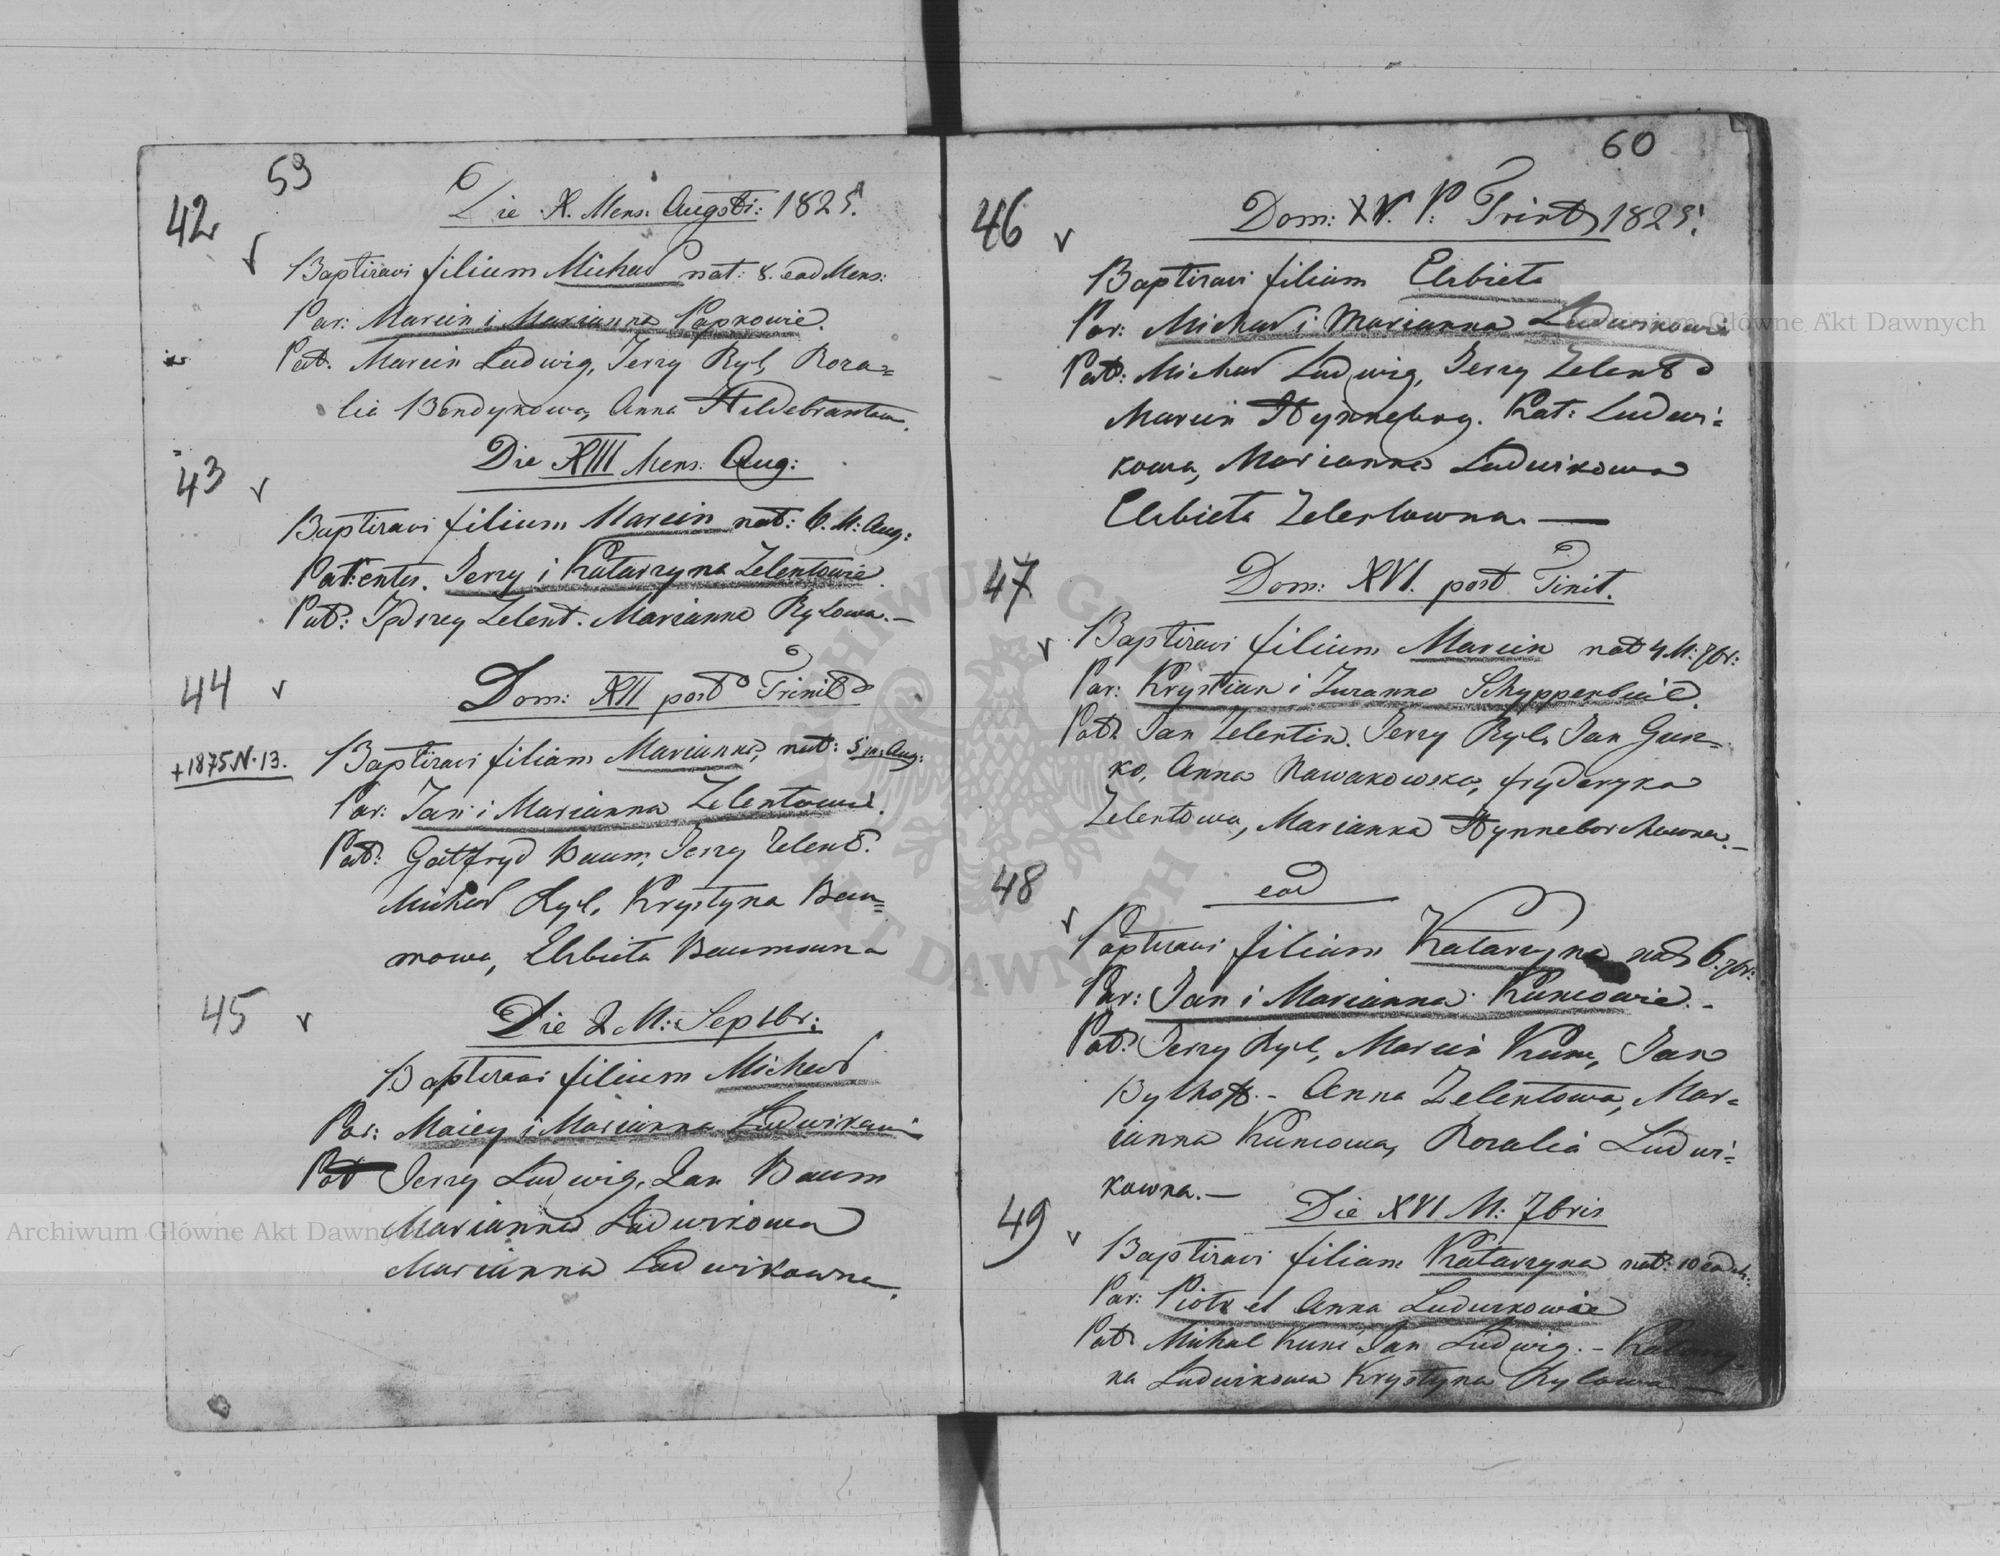 59
42
Die X. Mens: Augsti: 1825.
Baptizavi filium Michał nat: 8. ead Mens:
Par: Marcin i Marianna Papkowie.
Pat. Marcin Ludwig, Jerzy Ryl, Roza=
lia Bendykowa, Anna Hildebrantowa.
43
Die XIII Mens: Aug:
Baptizavi filium Marcin nat: 6. M: Aug:
Parentes. Jerzy i Katarzyna Zelentowie.
Pat: Jędrzey Zelent. Marianna Rylowa.—
44
Dom: XII post Trinit
+1875.N.13.
Baptizavi filiam Marianna, nat: 5 m: Aug:
Par: Jan i Marianna Zelentowie.
Pat: Gotfryd Baum, Jerzy Zelent.
Michał Ryl, Krystyna Bau=
mowa, Elzbieta Baumowna
45
Die 2 M: Septbr:
Baptizavi filium Michał
Par: Maciey i Marianna Ludwikowie
Pat Jerzy Ludwig, Jan Baum
Marianna Ludwikowa
Marianna Ludwikowna.
60
46
Dom: XV. P. Trinit 1825.
Baptizavi filiam Elzbieta
Par: Michał i Marianna Ludwikowie
Pat: Michał Ludwig, Jerzy Zelent
Marcin Hynneborg. Kat: Ludwi=
kowa, Marianna Ludwikowa
Elzbieta Zelentowna.—
47
Dom: XVI. post Trinit.
Baptizavi filium Marcin nat 4 M: 7br:
Par: Krystian i Zuzanna Schyppenbeil.
Pat Jan Zelentin. Jerzy Ryl, Jan Gun=
ko, Anna Nawakowska, fryderyka
Zelentowa, Marianna Hynneborchowna.—
48
ead
Baptizavi filiam Katarzyna nat 6. 7br:
Par: Jan i Marianna Kuncowie.-
Pat: Jerzy Ryl, Marcin Kunc, Jan
Bylhoff.- Anna Zelentowa, Mar=
ianna Kuncowa, Rozalia Ludwi=
kowna.—
49
Die XVI M: 7bris
Baptizavi filiam Katarzyna nat: 10 ead m:
Par: Piotr et Anna Ludwikowie
Pat Michał Kunc Jan Ludwig.- Katarzy
na Ludwikowa Krystyna Rylowa—
Archiwum Główne Akt Dawnych
Archiwum Główne Akt Dawnych
ARCHIWUM GŁÓWNE AKT DAWNYCH